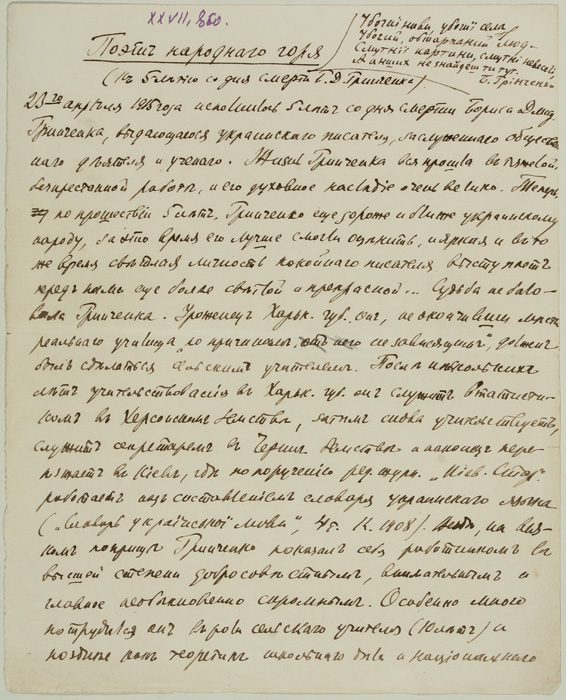 XXVII, 860.
Убогії ниви, убогії села,
Убогий, обшарпаний люд, –
Смутнії картини, смутні невеселі,
А инших не знайдеш ти тут.
Б. Грінченко
Поэтъ народнаго горя
(Къ 5 лѣтію со дня смерти Б. Д. Гринченка)
23го апрѣля 1915 года исполнилось 5 лѣтъ со дня смерти Бориса Дмид.
Гринченка, выдающагося украинскаго писателя, заслуженнаго обществен
наго дѣятеля и ученаго. Жизнь Гринченка вся прошла въ тяжелой,
безпрестанной работѣ, и его духовное наслѣдіе очень велико. Теперь,
по прошествіи 5 лѣтъ, Гринченко еще дороже и ближе украинскому
народу, за это время его лучше смогли оцѣнить, и яркая и въ то
же время свѣтлая личность покойнаго писателя выступаетъ
передъ нами еще болѣе свѣтлой и прекрасной... Судьба не бало-
вала Гринченка. Уроженецъ Харьк. губ. онъ, не окончивши
реальнаго училища „по причинамъ, отъ него независящимъ", долженъ
былъ сдѣлаться сельскимъ учителемъ. Послѣ нѣсколькихъ
лѣтъ учительствованія въ Харьк. губ. онъ служитъ статисти-
комъ въ Херсонскомъ земствѣ, затѣмъ снова учительствуетъ,
служитъ секретаремъ въ Черниг. земствѣ и наконецъ пере-
ѣзжаетъ въ Кіевъ, гдѣ по порученію ред. журн. „Кіев. Стар."
работаетъ надъ составленіемъ словаря украинскаго языка
(„Словарь української мови", К. 1908). на вся-
комъ поприщѣ Гринченко показалъ себя работникомъ въ
высшей степени добросовѣстнымъ, внимательнымъ и
главное необыкновенно скромнымъ. Особенно много
потрудился онъ въ роли сельскаго учителя (10 лѣтъ) и
позднѣе какъ теоретикъ школьнаго дѣла и національнаго